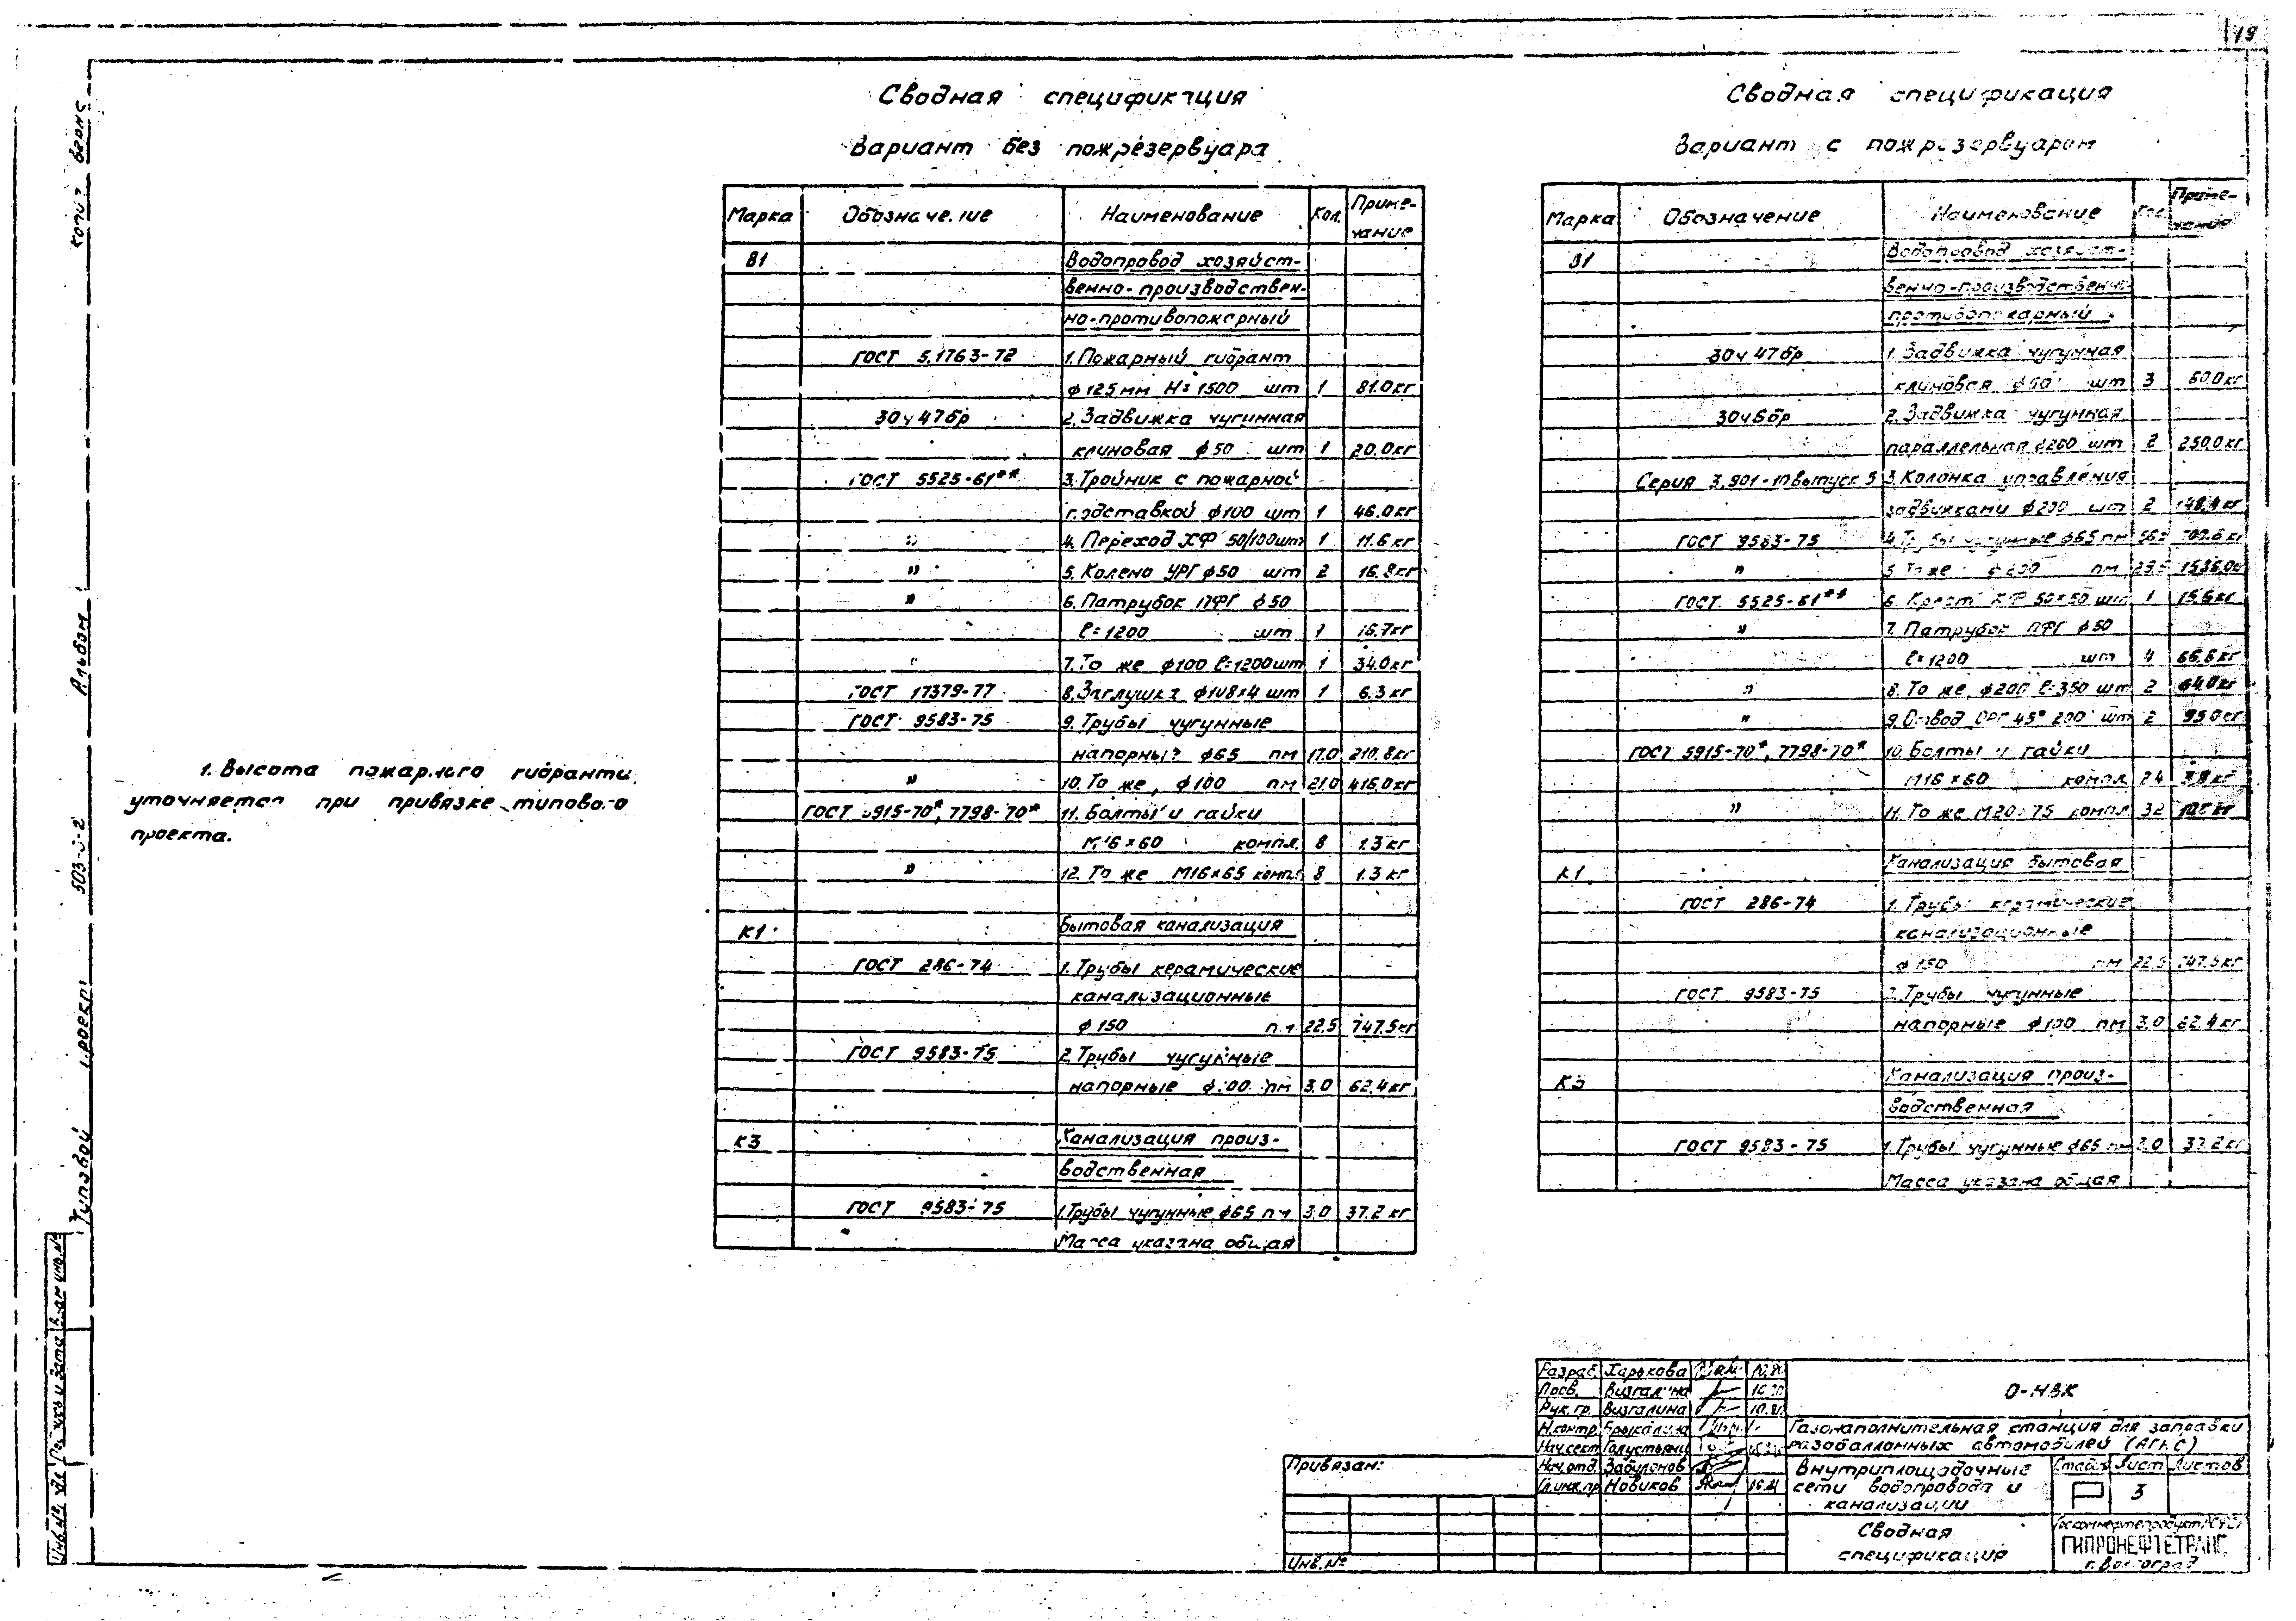 19
Сводная спецификация
Вариант без пожрезервуара
Марка Обозначение Наименование Кол. Приме-
чание
В1 Водопровод хозяйст-
венно-производствен-
но-противопожарный
ГОСТ 5.1763-72 1. Пожарный гидрант
φ125мм H=1500 шт 1 81.0кг
30ч47бр 2. Задвижка чугунная
клиновая φ50 шт 1 20.0кг
ГОСТ 5525-61** 3. Тройник с пожарной
подставкой φ100 шт 1 46.0кг
" 4. Переход ХФ 50/100шт 1 11.6кг
" 5. Колено УРГ φ50 шт 2 16.8кг
" 6. Патрубок ПФГ φ50
ℓ=1200 шт 1 16.7кг
" 7. То же φ100 ℓ=1200шт 1 34.0кг
ГОСТ 17379-77 8. Заглушка φ108×4 шт 1 6.3кг
ГОСТ 9583-75 9. Трубы чугунные
напорные φ65 пм 17.0 210.8кг
" 10. То же, φ100 пм 21.0 416.0кг
ГОСТ 5915-70*, 7798-70* 11. Болты и гайки
М16×60 компл. 8 1.3кг
" 12. То же М16×65 компл. 8 1.3кг
К1 Бытовая канализация
ГОСТ 286-74 1. Трубы керамические
канализационные
φ150 пм 22.5 747.5кг
ГОСТ 9583-75 2. Трубы чугунные
напорные φ100 пм 3.0 62.4кг
К3 Канализация произ-
водственная
ГОСТ 9583-75 1. Трубы чугунные φ65 пм 3.0 37.2кг
Масса указана общая
Сводная спецификация
Вариант с пожрезервуаром
Марка Обозначение Наименование Кол. Приме-
чание
В1 Водопровод хозяйст-
венно-производственно-
противопожарный
30ч47бр 1. Задвижка чугунная
клиновая φ50 шт 3 60.0кг
30ч6бр 2. Задвижка чугунная
параллельная φ200 шт 2 250.0кг
Серия 3.901-10 выпуск 5 3. Колонка управления
задвижками φ200 шт 2 148.4кг
ГОСТ 9583-75 4. Трубы чугунные φ65 пм
" 5. То же φ200 пм
ГОСТ 5525-61** 6. Крест КФ 50×50 шт 1 15.6кг
" 7. Патрубок ПФГ φ50
ℓ=1200 шт 4 66.8кг
" 8. То же, φ200 ℓ=350 шт 2 64.0кг
" 9. Отвод ОРГ 45° 200 шт 2 95.0кг
ГОСТ 5915-70*, 7798-70* 10. Болты и гайки
М16×60 компл. 24 3.8кг
" 11. То же М20×75 компл. 32
К1 Канализация бытовая
ГОСТ 286-74 1. Трубы керамические
канализационные
φ150 пм 22.5 747.5кг
ГОСТ 9583-75 2. Трубы чугунные
напорные φ100 пм 3.0 62.4кг
К3 Канализация произ-
водственная
ГОСТ 9583-75 1. Трубы чугунные φ65 пм 3.0 37.2кг
Масса указана общая
1. Высота пожарного гидранта
уточняется при привязке типового
проекта.
Типовой проект 503- -2 Альбом
Инв.№ Подпись и дата Взам инв.№
Привязан:
Инв.№
Разраб. Харькова
Пров. Визгалина
Рук.гр. Визгалина
Н.контр. Брыкалина
Нач.сект. Галустьянц
Нач.отд. Забулонов
Гл.инж.пр Новиков
0-НВК
Газонаполнительная станция для заправки
газобаллонных автомобилей (АГНС)
Внутриплощадочные
сети водопровода и
канализации
Стадия Лист Листов
Р 3
Сводная
спецификация
ГИПРОНЕФТЕТРАНС
г. Волгоград